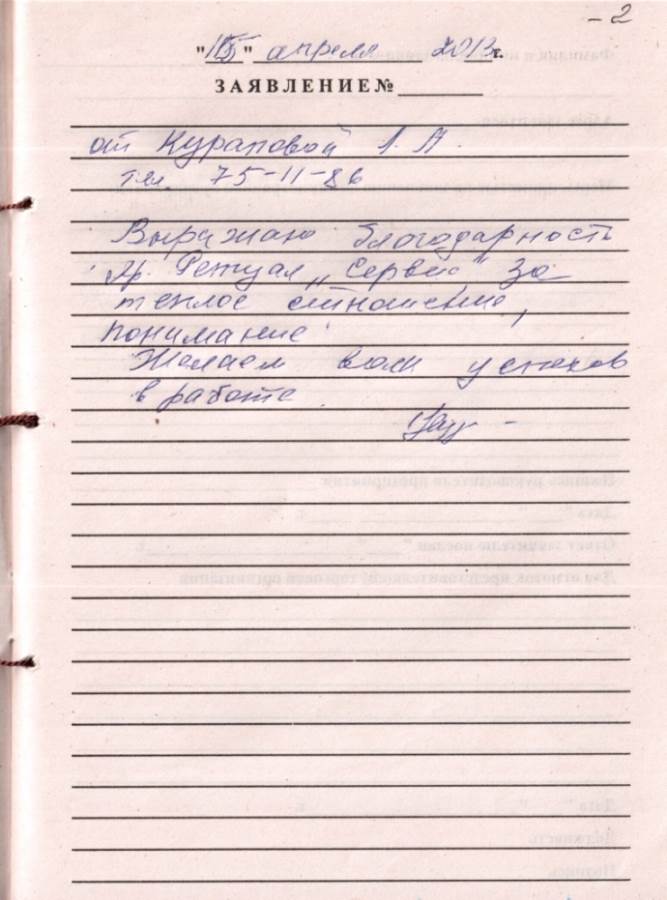 - 2
" " апреля 2013 г.
ЗАЯВЛЕНИЕ№
от Кураповой Л. А.
тел. 75-11-86
Выражаю благодарность
"Сервис" за
теплое отношение,
понимание!
Желаем вам успехов
в работе